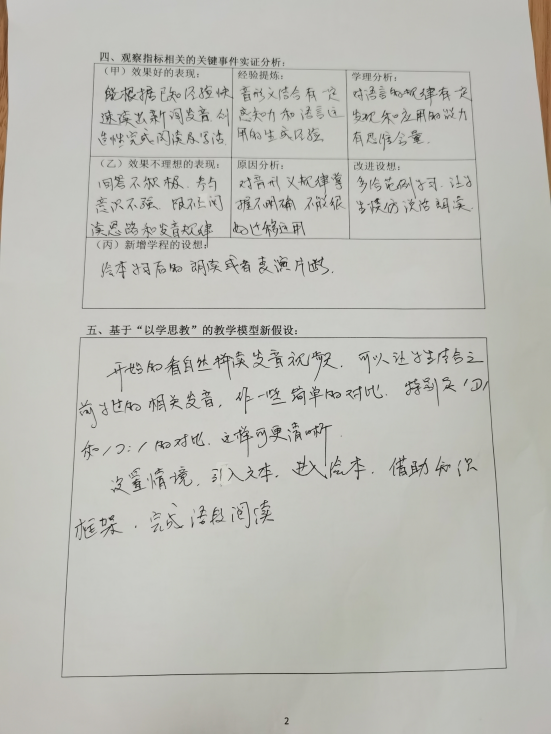 四、观察指标相关的关键事件实证分析：
（甲）效果好的表现：
能根据已知经验快
速读出新词发音，创
造性完成阅读及写话
经验提炼：
音形义结合有一定
感知力和语言运
用的生成经验
学理分析：
对语言的规律有一定
发现和应用的能力
有思维含量。
（乙）效果不理想的表现：
回答不积极，参与
意识不强，跟不上阅
读思路和发音规律
原因分析：
对音形义规律掌
握不明确，不能很
好迁移运用
改进设想：
多给范例学习，让学
生模仿说话朗读。
（丙）新增学程的设想：
绘本学习后的朗读或者表演片断。
五、基于“以学思教”的教学模型新假设：
开始的看自然拼读发音视频，可以让学生结合之
前学过的相关发音，作一些简单的对比，特别是
的对比，这样可更清晰
设置情境，引入文本，进入绘本，借助知识
框架，完成语段阅读
2